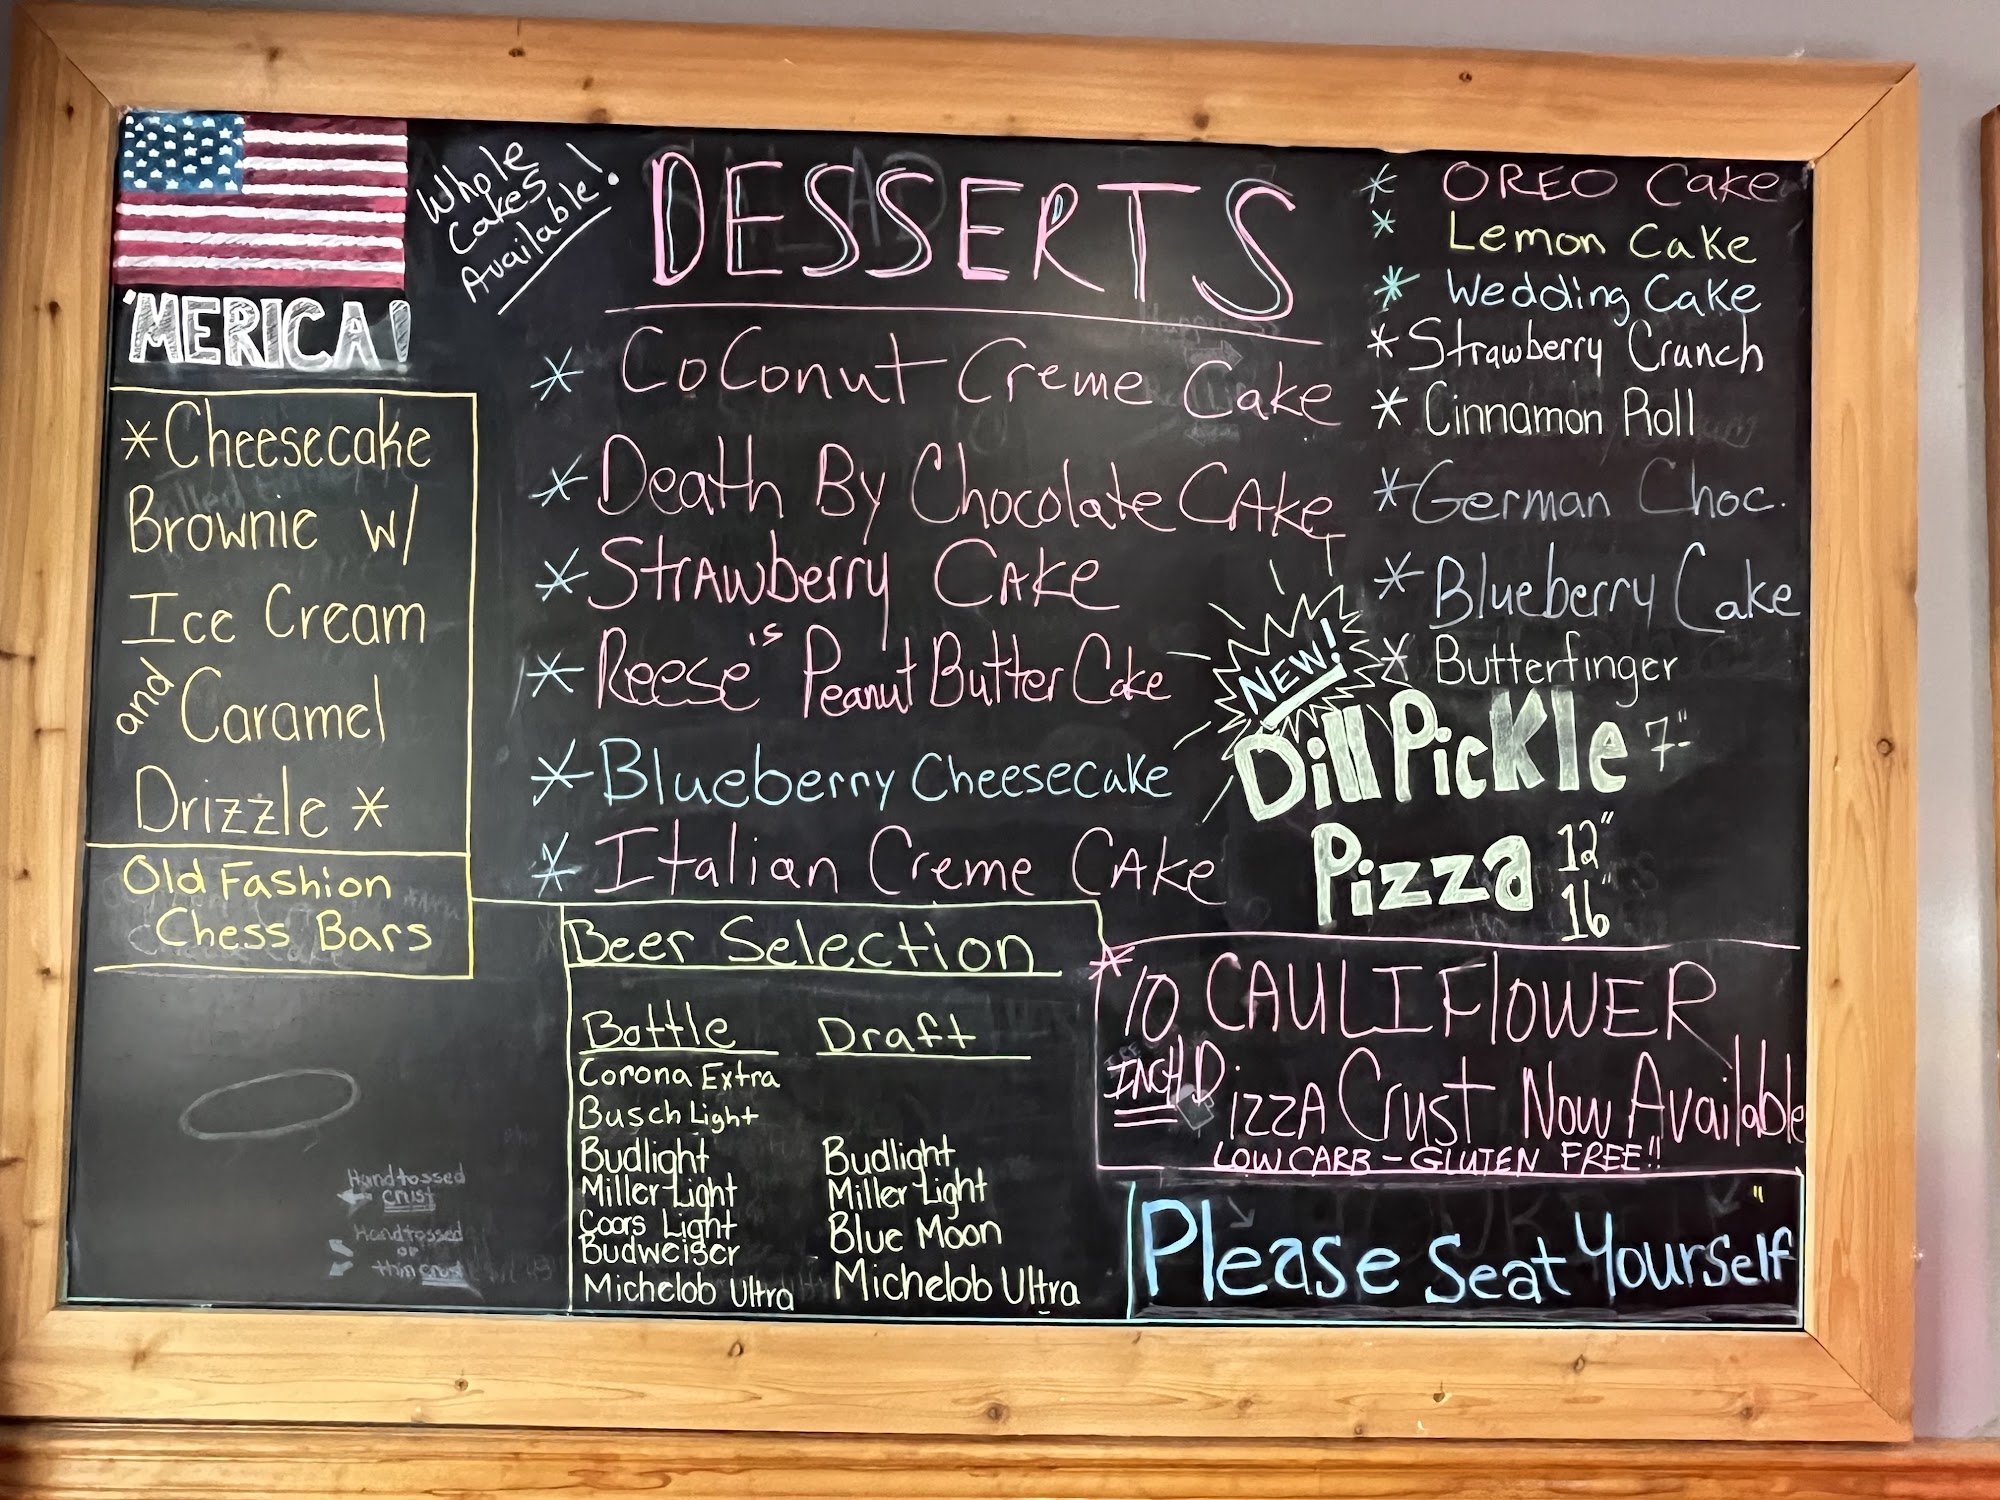 'MERICA!
Whole
Cakes
Available!
DESSERTS
* Coconut Creme Cake
* Death By Chocolate Cake
* Strawberry Cake
* Reese's Peanut Butter Cake
* Blueberry Cheesecake
* Italian Creme Cake
* OREO Cake
* Lemon Cake
* Wedding Cake
* Strawberry Crunch
* Cinnamon Roll
* German Choc.
* Blueberry Cake
* Butterfinger
*Cheesecake
Brownie w/
Ice Cream
and Caramel
Drizzle *
Old Fashion
Chess Bars
NEW!
Dill Pickle 7"
Pizza 12"
16"
Beer Selection
Bottle
Corona Extra
Busch Light
Budlight
Miller Light
Coors Light
Budweiser
Michelob Ultra
Draft
Budlight
Miller Light
Blue Moon
Michelob Ultra
* 10 CAULIFLOWER
INCH Pizza Crust Now Available
LOW CARB - GLUTEN FREE!!
Please Seat Yourself
Handtossed
crust
Handtossed
or
thin crust